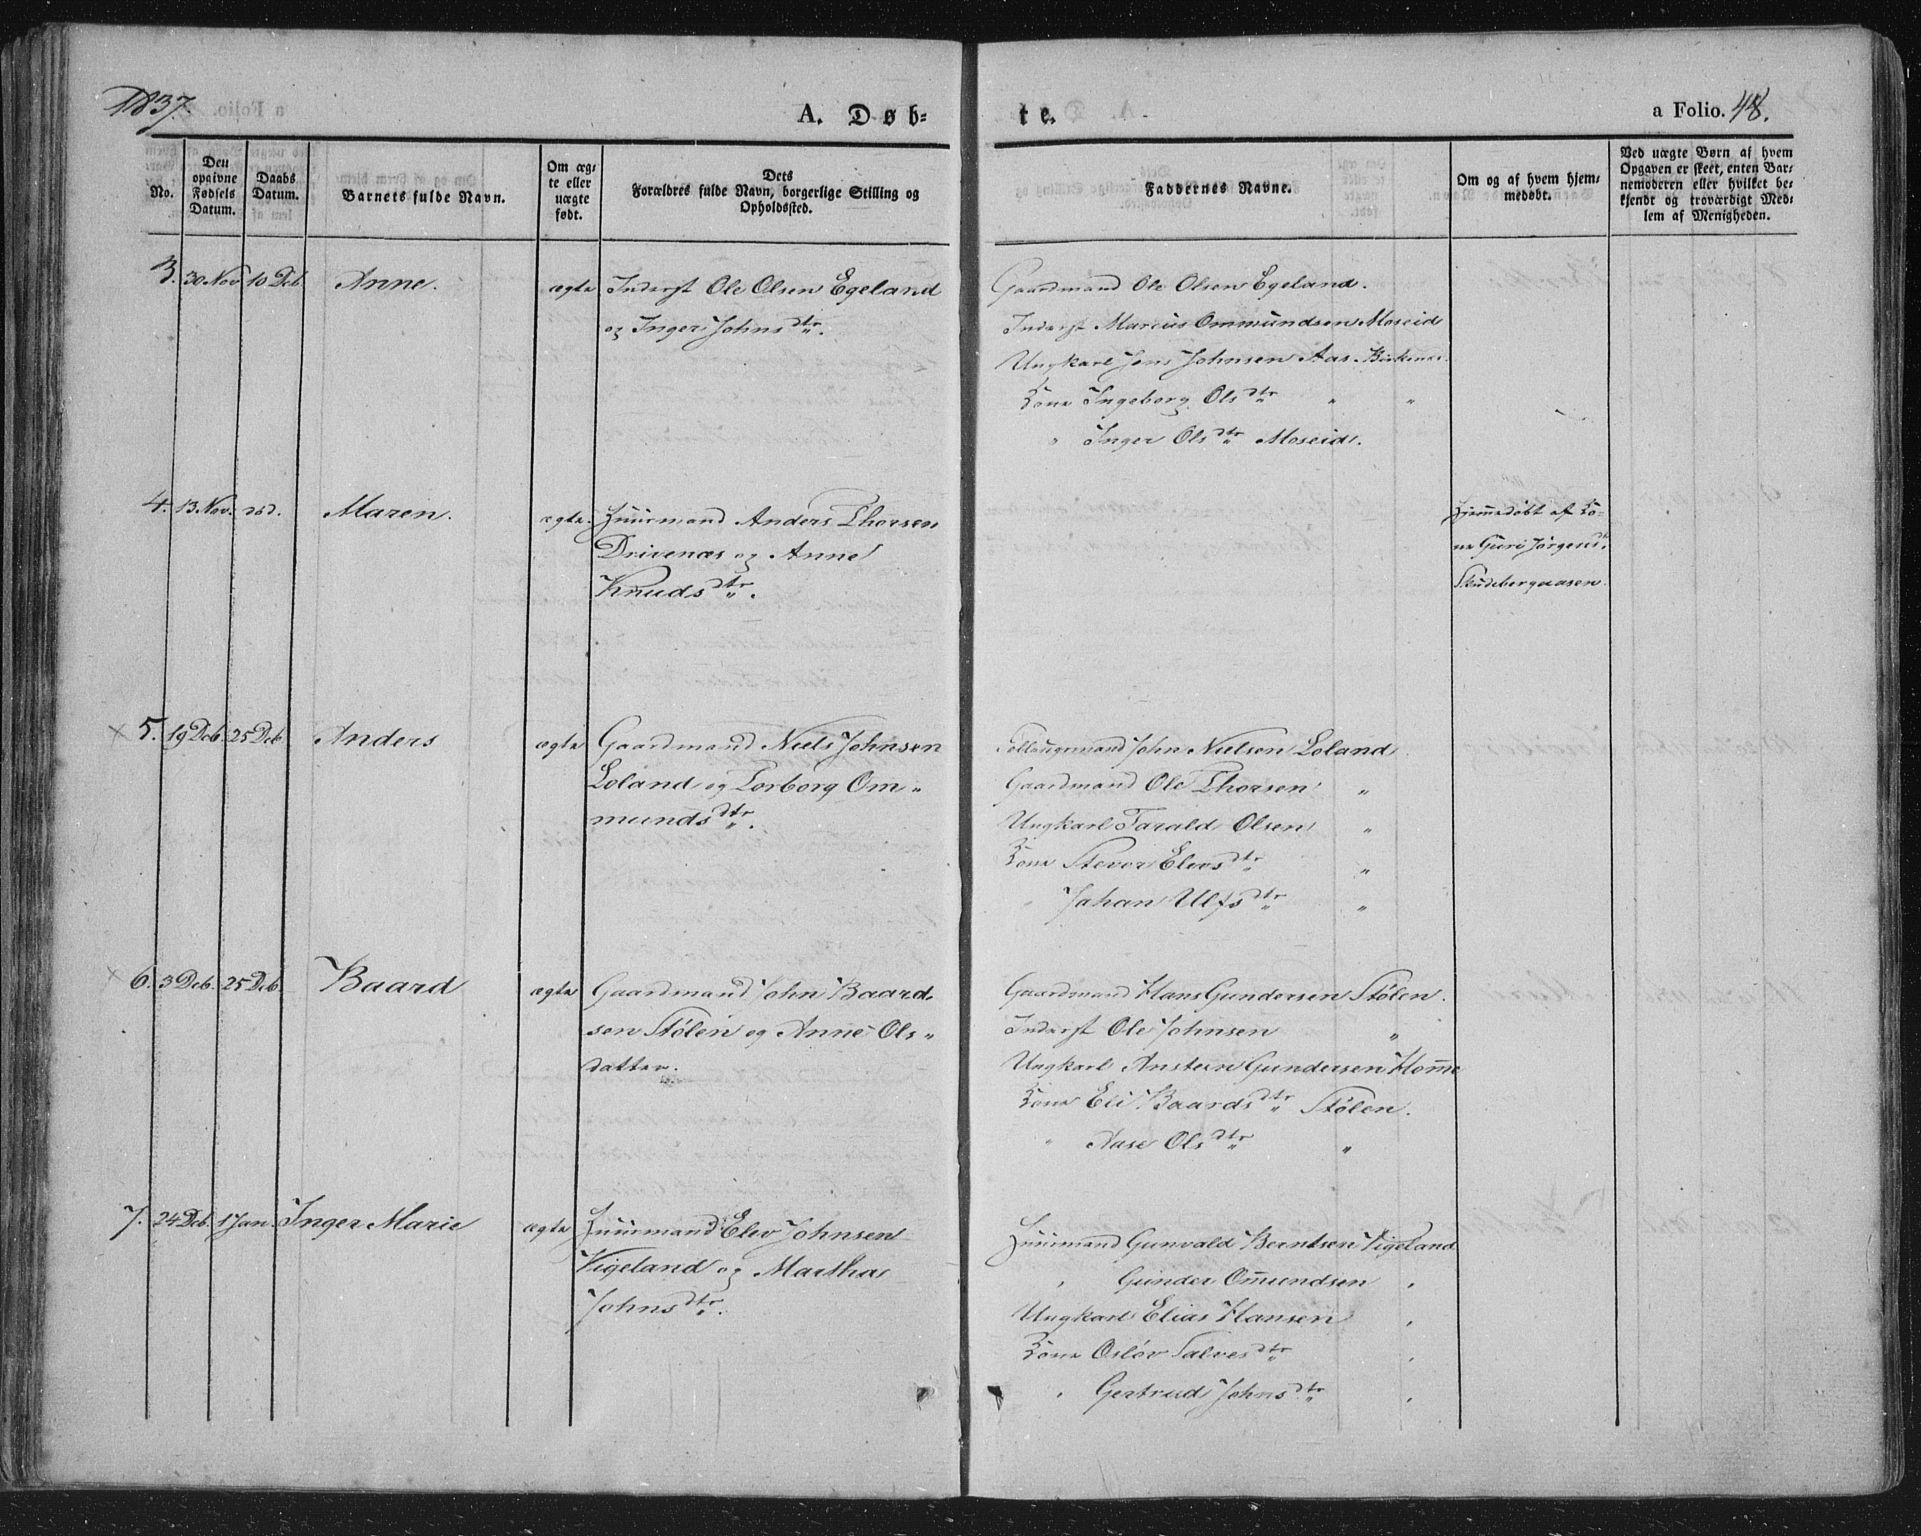 1837.
A. Døb-
te.
a Folio. 48.
No.
Den opgivne Fødsels Datum.
Daabs Datum.
Barnets fulde Navn.
Om ægte eller uægte født.
Dets
Forældres fulde Navn, borgerlige Stilling og
Opholdssted.
Faddernes Navne.
Om og af hvem hjem-
medøbt.
Ved uægte Børn af hvem
Opgaven er skeet, enten Bar-
nemoderen eller hvilket be-
kjendt og troværdigt Med-
lem af Menigheden.
3. 30 Nov 10 Deb. Anne. ægte Inderst Ole Olsen Egeland
og Inger Johnsdtr.
Gaardmand Ole Olsen Egeland.
Inderst Marcus Ommundsen Moseid
Ungkarl Jens Johnsen Aas. Birkenes
Kone Ingeborg Olsdtr " "
" Inger Olsdtr Moseid.
4. 13 Nov. død. Maren. ægte. Huusmand Anders Thorsen
Drivenæs og Anne
Knudsdtr.
Hjemmedøbt af Ko-
ne Guri Jørgensd.
Skudebergaasen
5. 19 Deb. 25 Deb Anders ægte Gaardmand Niels Johnsen
Loland og Torborg Om-
mundsdtr.
John Nielsen Loland
Gaardmand Ole Thorsen "
Ungkarl Tarald Olsen "
Kone Stevor Elevsdtr "
" Johan Ulfsdtr "
6. 3 Deb. 25 Deb. Baard ægte Gaardmand John Baard-
sen Stølen og Anne Ols-
datter.
Gaardmand Hans Gundersen Stølen.
Inderst Ole Johnsen "
Ungkarl Anstein Gundersen Homme
Kone Eli Baardsdtr Stølen.
" Aase Olsdtr "
7. 24 Deb. 1 Jan. Inger Marie ægte Huusmand Elev Johnsen
Vigeland og Martha
Johnsdtr.
Huusmand Gunvald Berntsen Vigeland
" Gunder Omundsen "
Ungkarl Elias Hansen "
Kone Osløv Salvesdtr "
" Gertrud Johnsdtr "